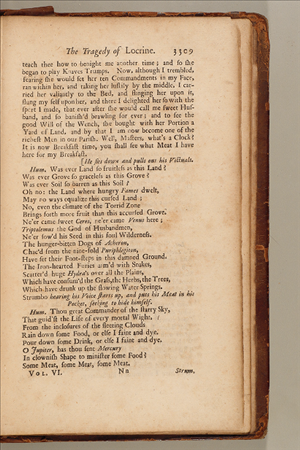 The Tragedy of Locrine. 3509
teach thee how to benight me another time; and so she
began to play Knaves Trumps. Now, although I trembled,
fearing she would set her ten Commandments in my Face,
ran within her, and taking her lustily by the middle, I car-
ried her valiantly to the Bed, and flinging her upon it,
flung my self upon her, and there I delighted her so with the
sport I made, that ever after she would call me sweet Hus-
band, and so banish'd brawling for ever: and to see the
good Will of the Wench, she bought with her Portion a
Yard of Land, and by that I am now become one of the
richest Men in our Parish. Well, Masters, what's a Clock?
It is now Breakfast time, you shall see what Meat I have
here for my Breakfast.
[He sits down and pulls out his Victuals.
Hum. Was ever Land so fruitless as this Land?
Was ever Grove so graceless as this Grove?
Was ever Soil so barren as this Soil?
Oh no: the Land where hungry Fames dwelt,
May no ways equalize this cursed Land;
No, even the climate of the Torrid Zone
Brings forth more fruit than this accursed Grove.
Ne'er came sweet Ceres, ne'er came Venus here;
Triptolemus the God of Husbandmen,
Ne'er sow'd his Seed in this foul Wilderness.
The hunger-bitten Dogs of Acheron,
Chac'd from the nine-fold Puriphlegiton,
Have set their Foot-steps in this damned Ground.
The Iron-hearted Furies arm'd with Snakes,
Scatter'd huge Hydra's over all the Plains,
Which have consum'd the Grass, the Herbs, the Trees,
Which have drunk up the flowing Water Springs.
Strumbo hearing his Voice starts up, and puts his Meat in his
Pocket, seeking to hide himself.
Hum. Thou great Commander of the starry Sky,
That guid'st the Life of every mortal Wight,
From the inclosures of the fleeting Clouds
Rain down some Food, or else I faint and dye.
Pour down some Drink, or else I faint and dye.
O Jupiter, has thou sent Mercury
In clownish Shape to minister some Food?
Some Meat, some Meat, some Meat.
VOL. VI. Nn Strum.